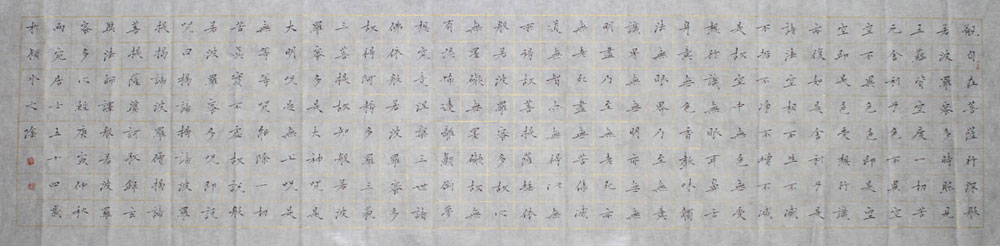 觀自在菩薩行深般
若波羅蜜多時照見
五蘊皆空度一切苦
厄舍利子色不異空
空不異色色即是空
空即是色受想行識
亦復如是舍利子是
諸法空相不生不滅
不垢不淨不增不減
是故空中無色無受
想行識無眼耳鼻舌
身意無色聲香味觸
法無眼界乃至無意
識界無無明亦無無
明盡乃至無老死亦
無老死盡無苦集滅
道無智亦無得以無
所得故菩提薩埵依
般若波羅蜜多故心
無罣礙無罣礙故無
有恐怖遠離顛倒夢
想究竟涅槃三世諸
佛依般若波羅蜜多
故得阿耨多羅三藐
三菩提故知般若波
羅蜜多是大神咒是
大明咒是無上咒是
無等等咒能除一切
苦真實不虛故說般
若波羅蜜多咒即說
咒曰揭諦揭諦波羅
揭諦波羅僧揭諦
菩提薩婆訶敬錄玄
奘法師譯般若波羅
蜜多心經庚寅仲秋
雨居士五十四歲